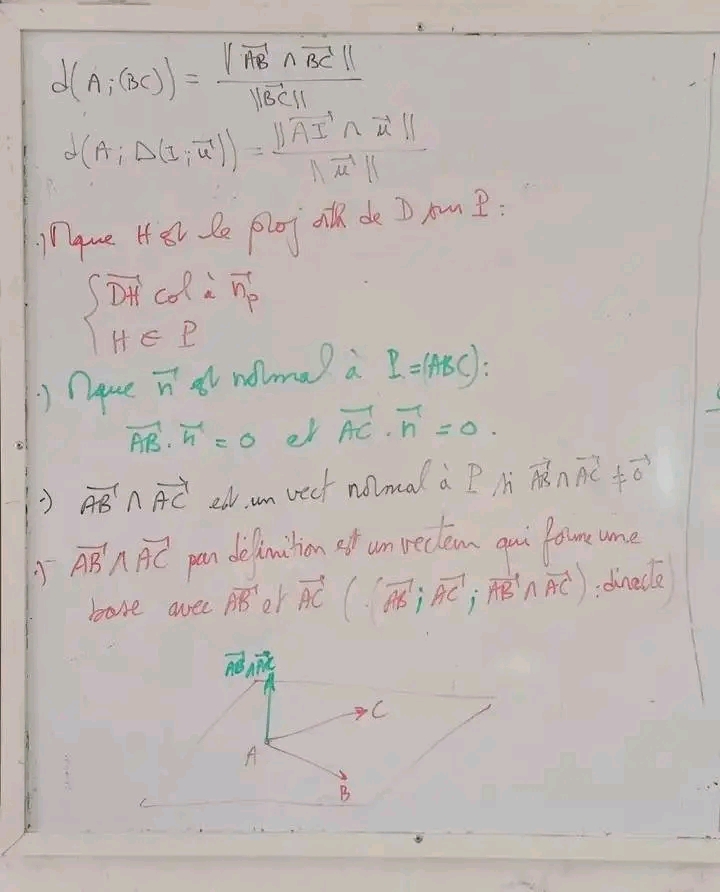 d(A;(BC)) = ||\vec{AB} ∧ \vec{BC}|| / ||\vec{BC}||
d(A; D(I;\vec{u})) = ||\vec{AI} ∧ \vec{u}|| / ||\vec{u}||
.) Mque H est le proj orth de D sur P :
{ \vec{DH} col à \vec{n}_p
H ∈ P
.) Mque \vec{n} est normal à P = (ABC) :
\vec{AB} . \vec{n} = 0 et \vec{AC} . \vec{n} = 0 .
.) \vec{AB} ∧ \vec{AC} est un vect normal à P si \vec{AB} ∧ \vec{AC} ≠ \vec{0}
.) \vec{AB} ∧ \vec{AC} par définition est un vecteur qui forme une
base avec \vec{AB} et \vec{AC} ( (\vec{AB} ; \vec{AC} ; \vec{AB} ∧ \vec{AC}) : directe)
\vec{AB} ∧ \vec{AC}
C
A
B